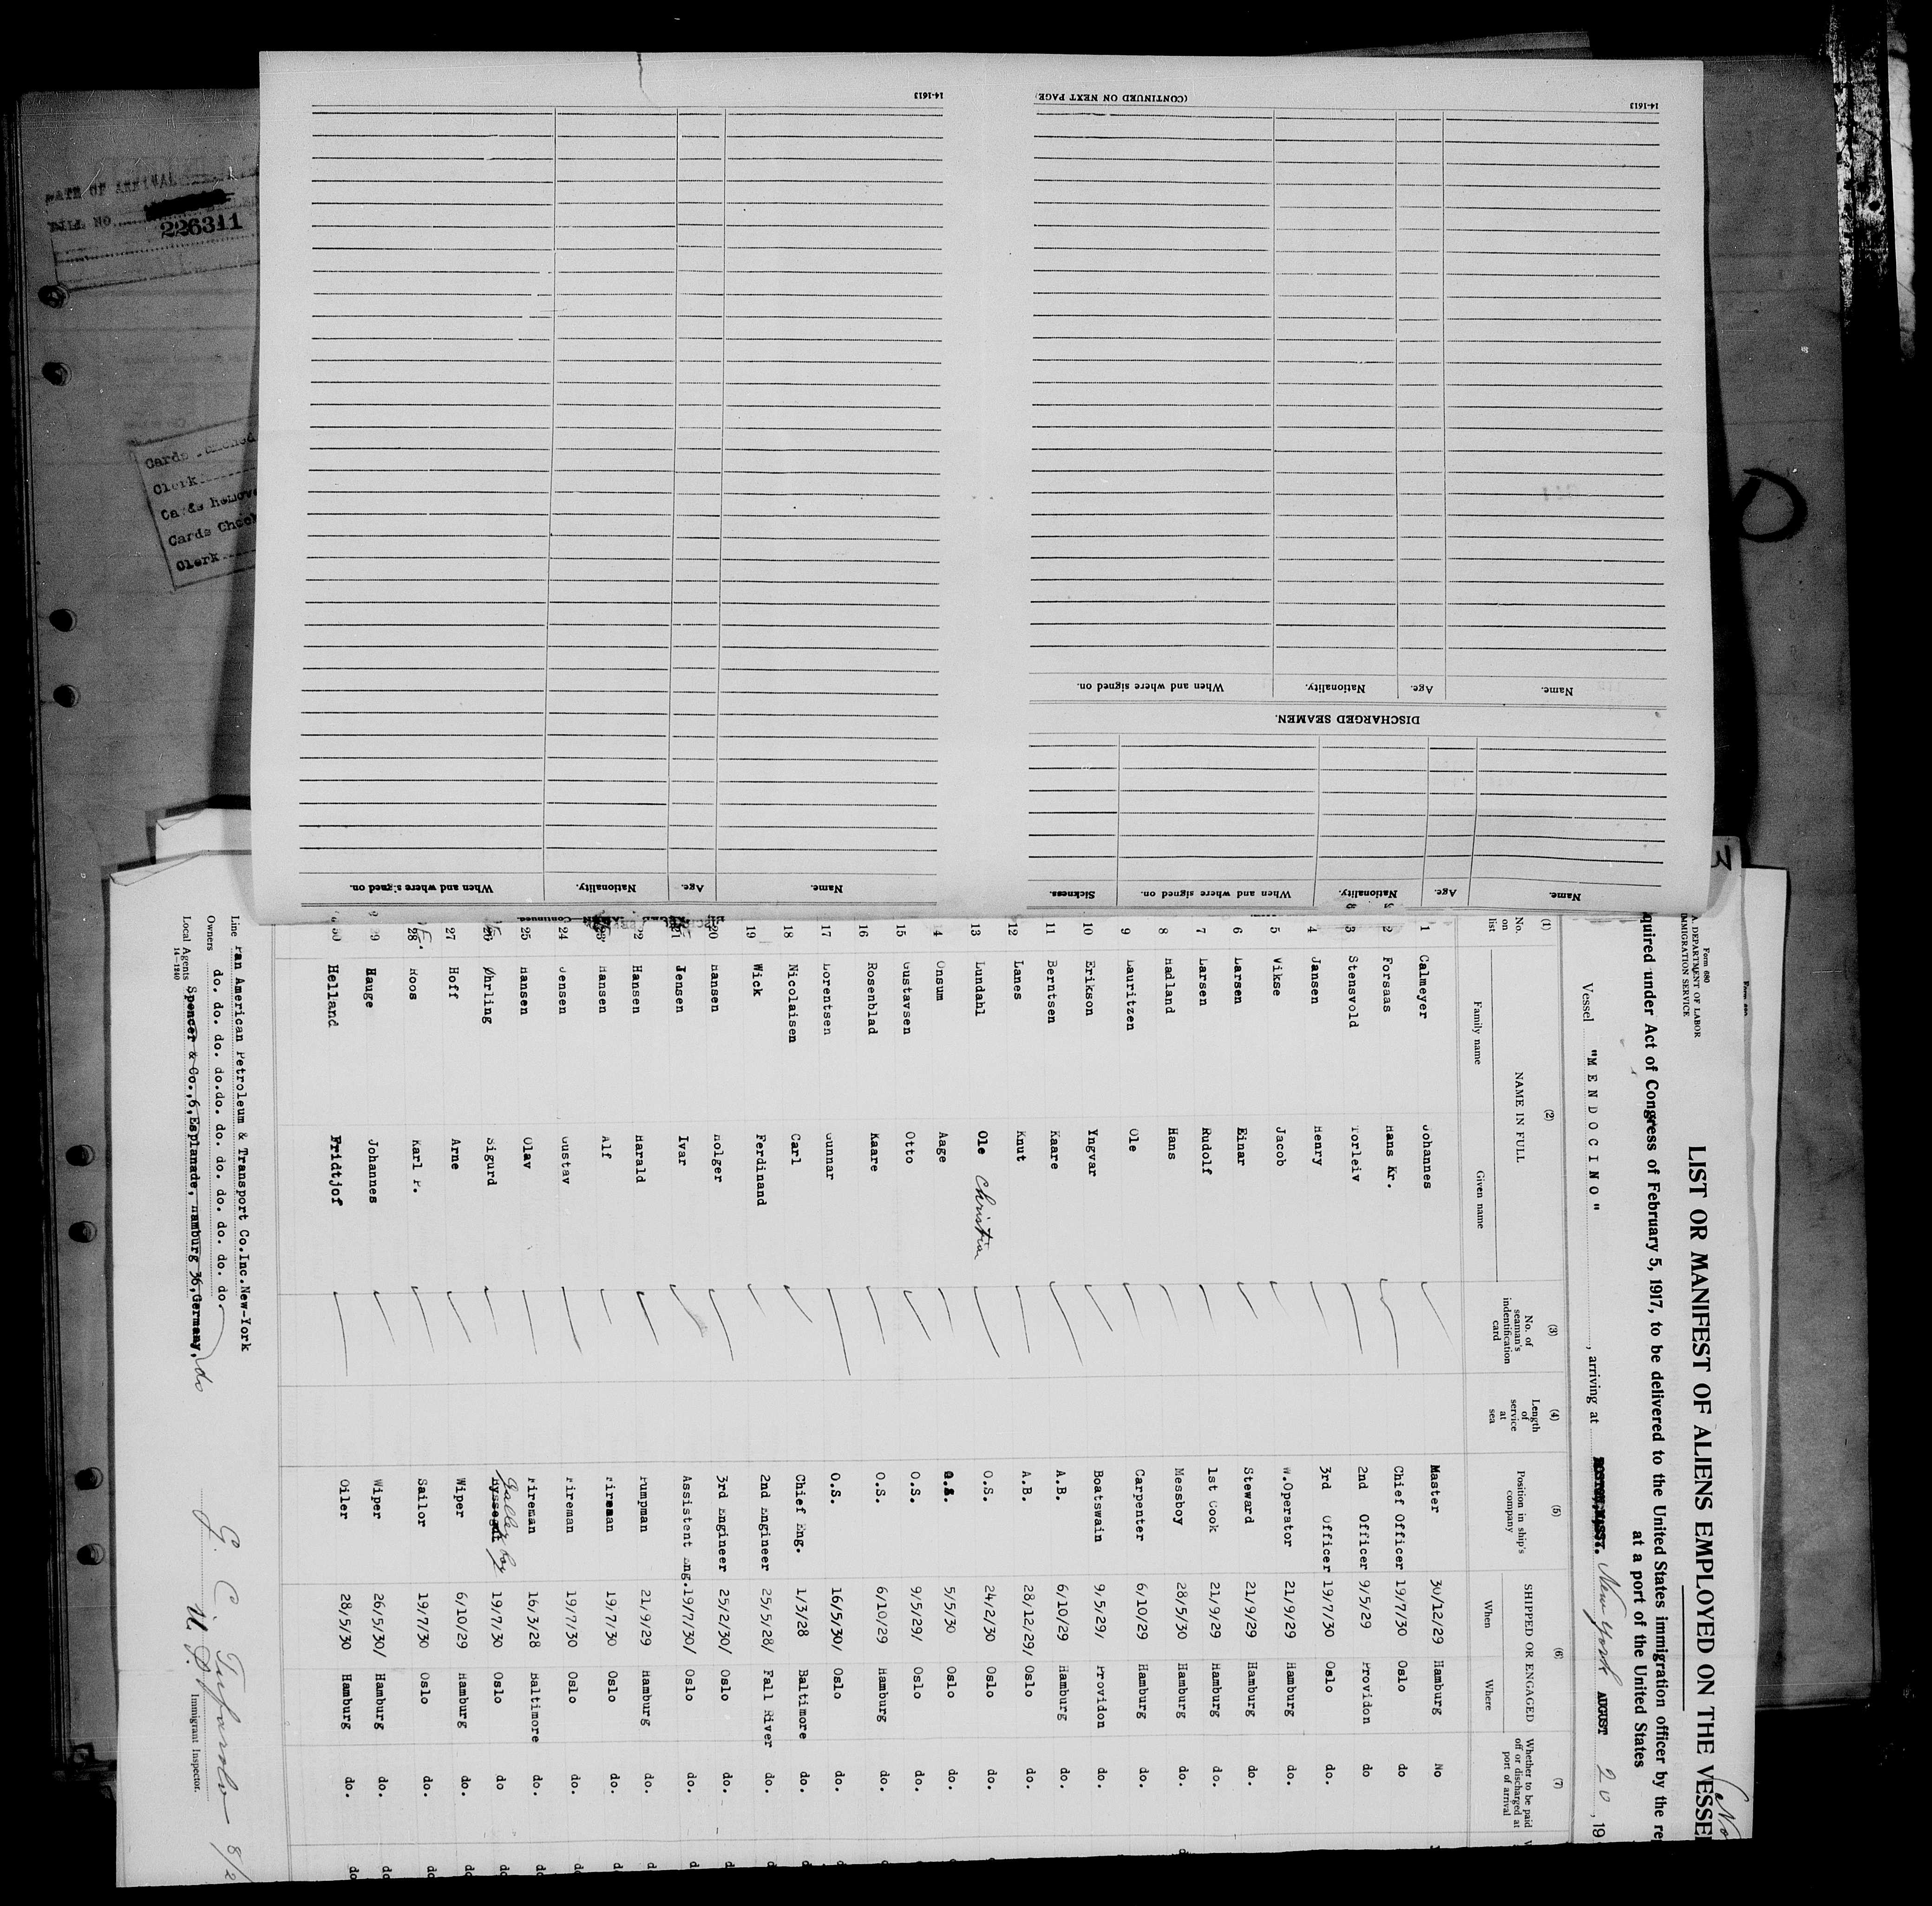 14-1613
(CONTINUED ON NEXT PAGE)
14-1613
DATE OF ARRIVAL
BILL NO.
226311
Cards
Clerk
Cards
Cards
Clerk
Name. Age. Nationality. When and where signed on.
DISCHARGED SEAMEN.
Name. Age. Nationality. When and where signed on. Sickness.
Name. Age. Nationality. When and where signed on.
Form 680
DEPARTMENT OF LABOR
IMMIGRATION SERVICE
LIST OR MANIFEST OF ALIENS EMPLOYED ON THE VESSEL
quired under Act of Congress of February 5, 1917, to be delivered to the United States immigration officer by the re
at a port of the United States
Vessel "MENDOCINO", arriving at BOSTON, MASS. New York AUGUST 20, 19
(1) (2) (3) (4) (5) (6) (7)
No. on list NAME IN FULL No. of seaman's indentification card Length of service at sea Position in ship's company SHIPPED OR ENGAGED Whether to be paid off or discharged at port of arrival
Family name Given name When Where
1 Calmeyer Johannes Master 30/12/29 Hamburg No
2 Forsaas Hans Kr. Chief Officer 19/7/30 Oslo do
3 Stensvold Torleiv 2nd Officer 9/5/29 Providon do
4 Jansen Henry 3rd Officer 19/7/30 Oslo do.
5 Vikse Jacob W.Operator 21/9/29 Hamburg do.
6 Larsen Einar Steward 21/9/29 Hamburg do.
7 Larsen Rudolf 1st Cook 21/9/29 Hamburg do.
8 Hadland Hans Messboy 28/5/30 Hamburg do.
9 Lauritzen Ole Carpenter 6/10/29 Hamburg do.
10 Erikson Yngvar Boatswain 9/5/29/ Providon do.
11 Berntsen Kaare A.B. 6/10/29 Hamburg do.
12 Lanes Knut A.B. 28/12/29/ Oslo do.
13 Lundahl Ole Christian O.S. 24/2/30 Oslo do.
4 Onsum Aage O.S. 5/5/30 Oslo do.
15 Gustavsen Otto O.S. 9/5/29/ Oslo do.
16 Rosenblad Kaare O.S. 6/10/29 Hamburg do.
17 Lorentsen Gunnar O.S. 16/5/30/ Oslo do.
18 Nicolaisen Carl Chief Eng. 1/3/28 Baltimore do.
19 Wick Ferdinand 2nd Engineer 25/5/28/ Fall River do.
20 Hansen Holger 3rd Engineer 25/2/30/ Oslo do.
21 Jensen Ivar Assistent Eng. 19/7/30/ Oslo do.
22 Hansen Harald Pumpman 21/9/29 Hamburg do.
23 Hansen Alf Fireman 19/7/30 Oslo do.
24 Jensen Gustav Fireman 19/7/30 Oslo do.
25 Hansen Olav Fireman 16/3/28 Baltimore do.
26 Øhrling Sigurd Galley boy 19/7/30 Oslo do
27 Hoff Arne Wiper 6/10/29 Hamburg do.
28 Roos Karl F. Sailor 19/7/30 Oslo do.
29 Hauge Johannes Wiper 26/5/30/ Hamburg do.
30 Helland Fridtjof Oiler 28/5/30 Hamburg do.
Line Pan American Petroleum & Transport Co.Inc.New-York
Owners do. do. do. do.do. do. do. do. do. do. do. do.
Local Agents Spencer & Co.,6,Esplanade, Hamburg 36,Germany, do
14-1240
Immigrant Inspector.